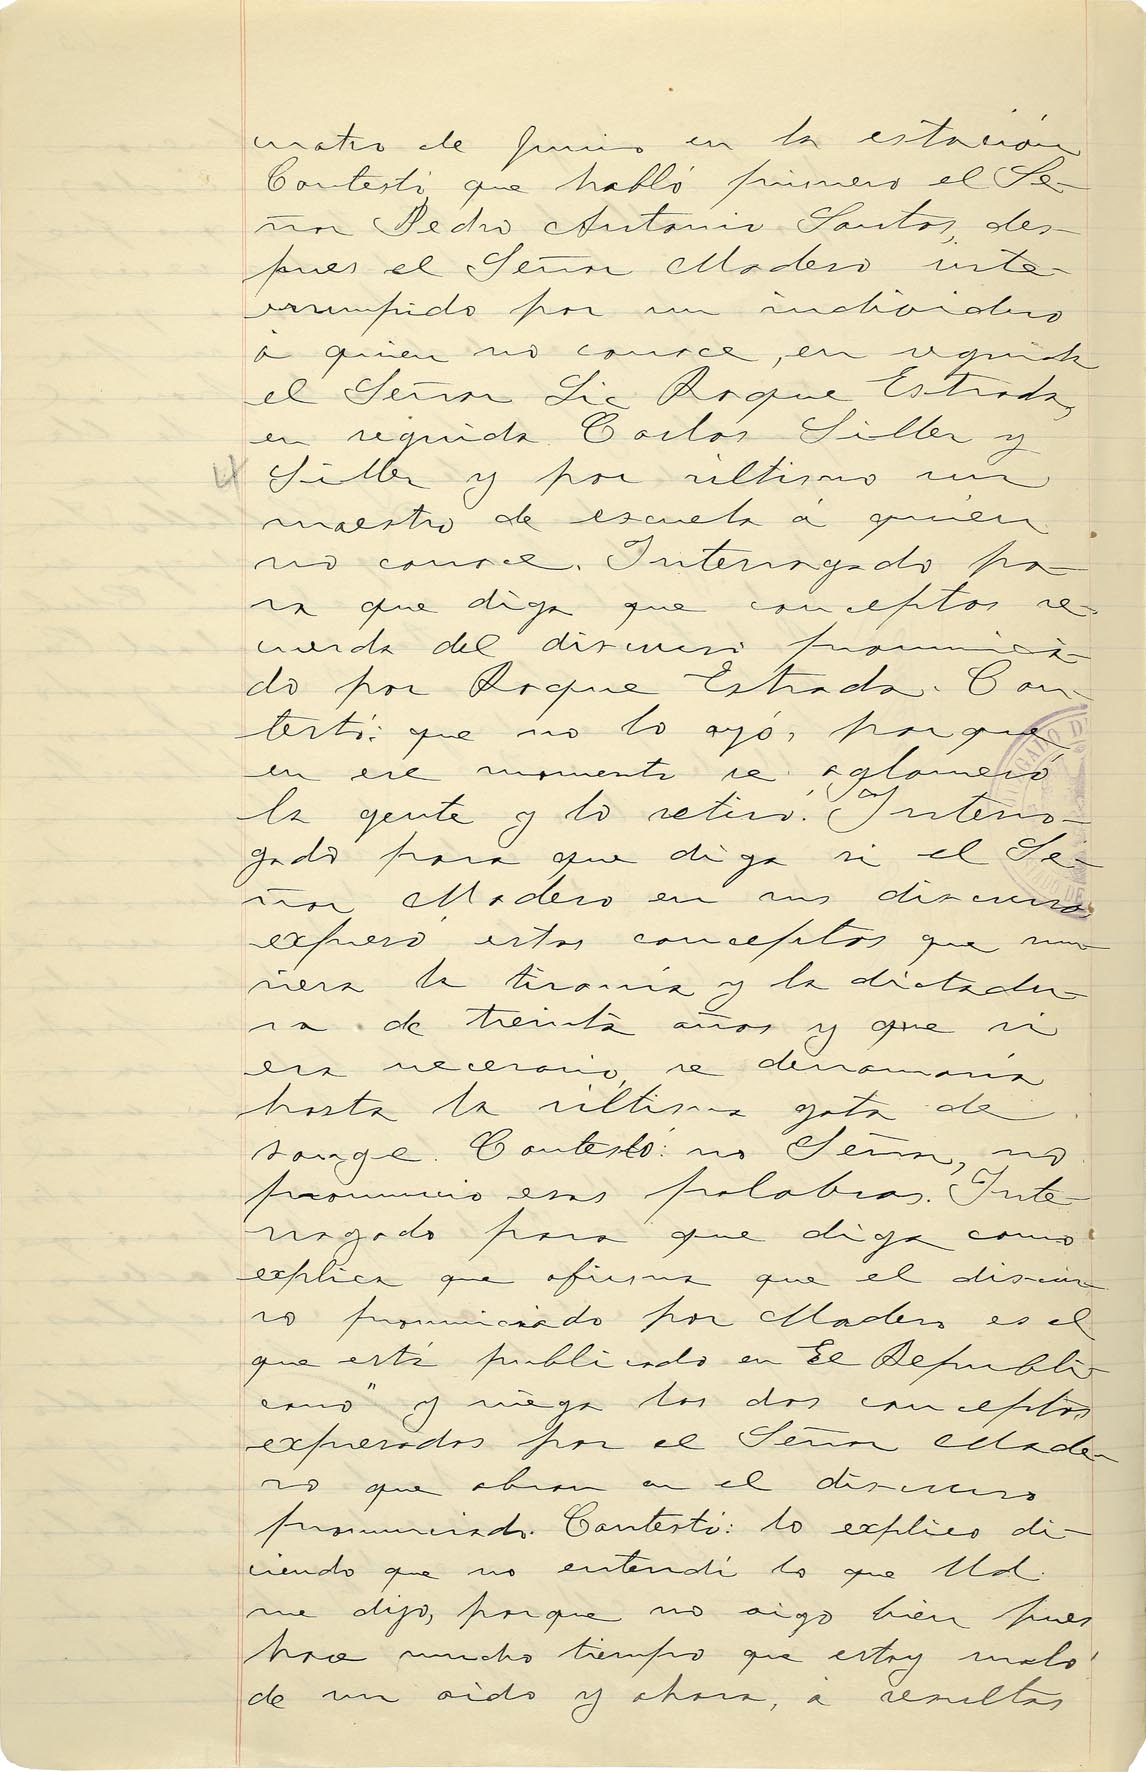 cuatro de Junio en la estación
Contestó, que habló primero el Se-
ñor Pedro Antonio Santos, des-
pues el Señor Madero inte-
rrumpido por un individuo
á quien no conoce, en seguida
el Señor Lic Roque Estrada,
en seguida Carlos Siller y
Siller y por último un
maestro de escuela á quien
no conoce. Interrogado pa-
ra que diga que conceptos re-
cuerda del discurso pronuncia-
do por Roque Estrada. Con-
testó: que no lo oyó, porque
en ese momento se aglomeró
la gente y lo retiró. Interro-
gado para que diga si el Se-
ñor Madero en sus discurso
expresó estos conceptos que mu-
riera la tiranía y la dictadu-
ra de treinta años y que si
era necesario, se derramaría
hasta la última gota de
sange. Contestó: no Señor, no
pronuncio esas palabras. Inte-
rrogado para que diga como
explica que afirma que el discur-
so pronunciado por Madero es el
que está publicado en El Republi-
cano" y niega los dos conceptos
expresados por el Señor Made-
ro que obran en el discurso
pronunciado. Contestó: lo explico di-
ciendo que no entendí lo que Ud.
me dijo, porque no oigo bien pues
hace mucho tiempo que estoy malo
de un oido y ahora, á resultas